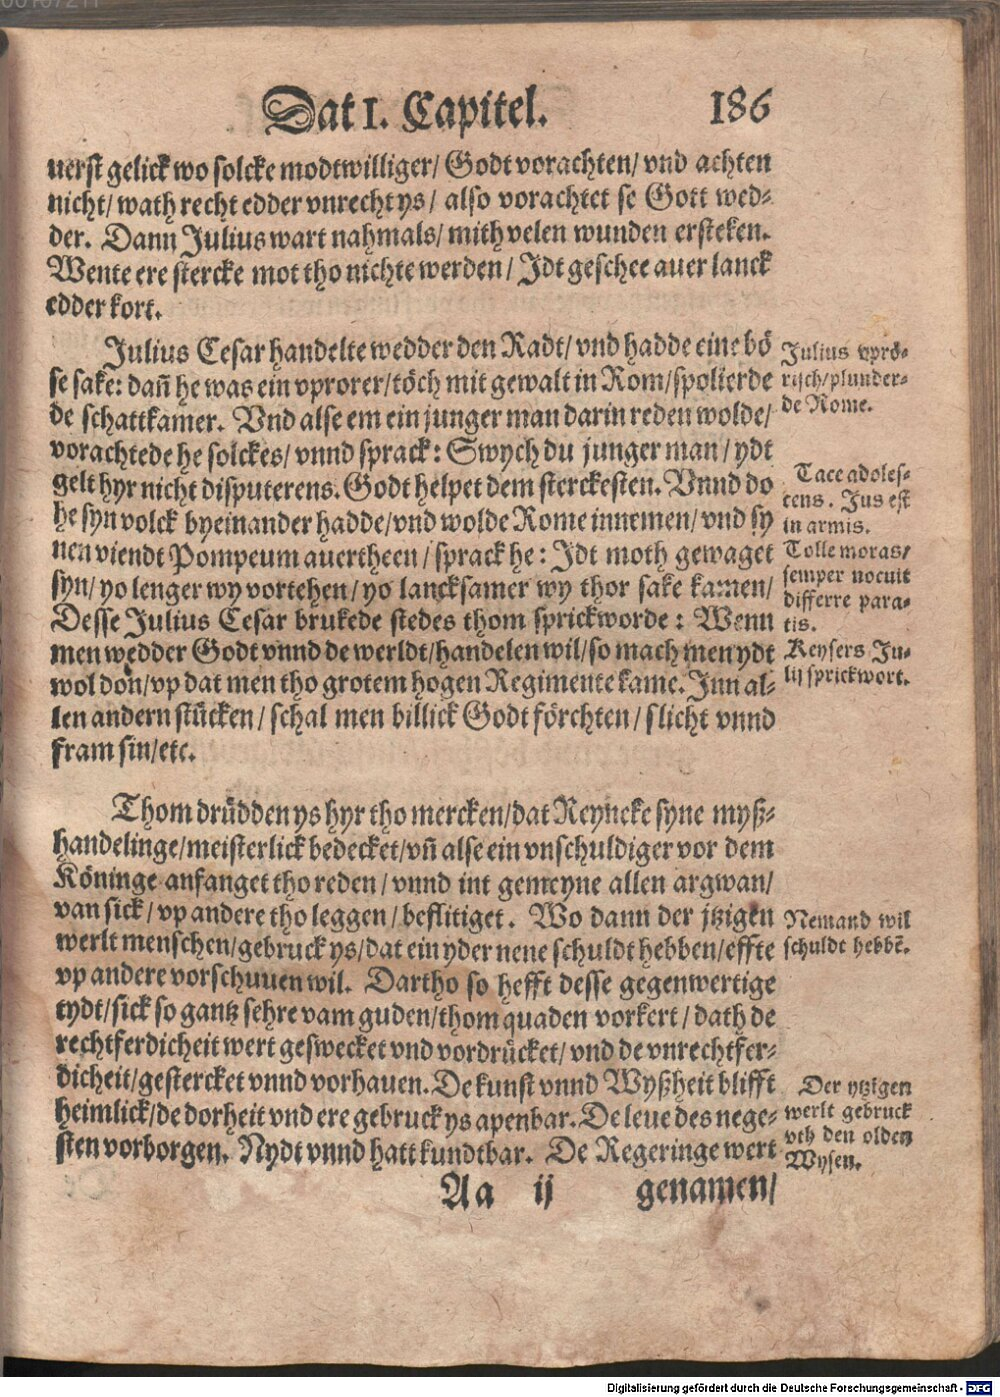 Dat 1. Capitel. 186
uerst gelick wo solcke modtwilliger/ Godt vorachten/ vnd achten
nicht/ wath recht edder vnrecht ys/ also vorachtet se Gott wed⸗
der. Dann Julius wart nahmals/ mith velen wunden ersteken.
Wente ere stercke mot tho nichte werden/ Jdt geschee auer lanck
edder kort.
Julius Cesar handelte wedder den Radt/ vnd hadde eine bö
se sake: dañ he was ein vprorer/ töch mit gewalt in Rom/ spolierde
de schattkamer. Vnd alse em ein junger man darin reden wolde/
vorachtede he solckes/ vnnd sprack: Swych du junger man/ ydt
gelt hyr nicht disputerens. Godt helpet dem sterckesten. Vnnd do
he syn volck byeinander hadde/ vnd wolde Rome innemen/ vnd sy
nen viendt Pompeum auertheen/ sprack he: Jdt moth gewaget
syn/ yo lenger wy vortehen/ yo lancksamer wy thor sake kamen/
Desse Julius Cesar brukede stedes thom sprickworde: Wenn
men wedder Godt vnnd de werldt/ handelen wil/ so mach men ydt
wol dön/ vp dat men tho grotem hogen Regimente kame. Jnn al⸗
len andern stücken/ schal men billick Godt förchten/ slicht vnnd
fram sin/ etc.
Julius vprö⸗
risch/ plunder⸗
de Rome.
Tace adoles⸗
cens. Jus est
in armis.
Tolle moras/
semper nocuit
differre para⸗
tis.
Keysers Ju⸗
lij sprickwort.
Thom drüdden ys hyr tho mercken/ dat Reyneke syne myß⸗
handelinge/ meisterlick bedecket/ vñ alse ein vnschuldiger vor dem
Köninge anfanget tho reden/ vnnd int gemeyne allen argwan/
van sick/ vp andere tho leggen/ beflitiget. Wo dann der jtzigen
werlt menschen/ gebruck ys/ dat ein yder nene schuldt hebben/ effte
vp andere vorschuuen wil. Dartho so hefft desse gegenwertige
tydt/ sick so gantz sehre vam guden/ thom quaden vorkert/ dath de
rechtferdicheit wert geswecket vnd vordrücket/ vnd de vnrechtfer⸗
dicheit/ gestercket vnnd vorhauen. De kunst vnnd Wyßheit blifft
heimlick/ de dorheit vnd ere gebruck ys apenbar. De leue des nege⸗
sten vorborgen. Nydt vnnd hatt kundtbar. De Regeringe wert
Nemand wil
schuldt hebbẽ.
Der ytzigen
werlt gebruck
vth den olden
Wysen.
Aa ij genamen/
Digitalisierung gefördert durch die Deutsche Forschungsgemeinschaft - DFG